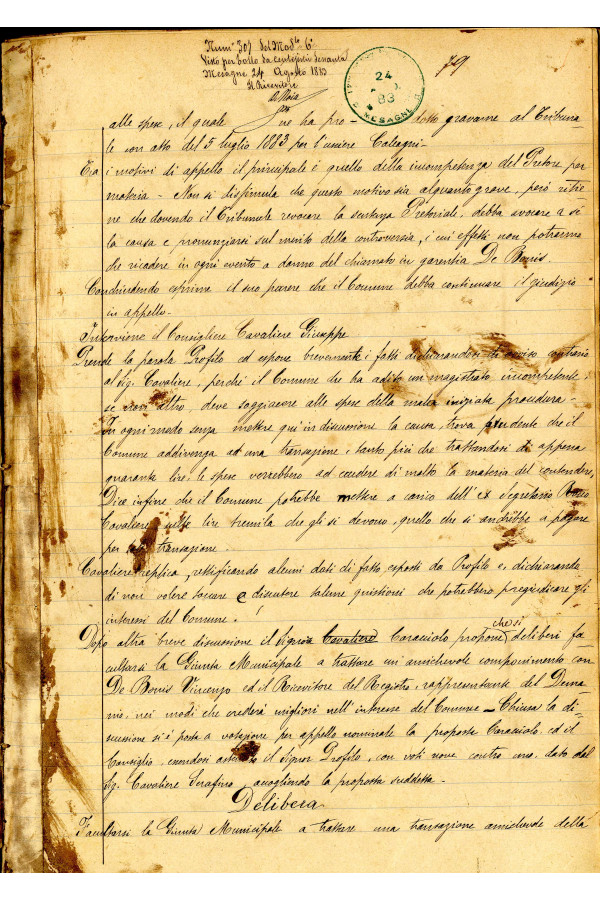 Num° 301 del Mod° 6°
Visto per bollo da centesimi sessanta
Mesagne 24 Agosto 1883
Il Ricevitore
79
24
83
MESAGNE
alle spese, il quale ne ha pro- sotto gravame al Tribuna-
le con atto del 5 luglio 1883 per l'usciere Calcagni-
Tra i motivi di appello il principale è quello della incompetenza del Pretore per
materia - Non si dissimula che questo motivo sia alquanto grave, però ritie-
ne che dovendo il Tribunale revocare la sentenza Pretoriale, debba avocare a sè
la causa e pronunziarsi sul merito della controversia, i cui effetti non potranno
che ricadere in ogni evento a danno del chiamato in garentia De Bonis.
Conchiudendo esprime il suo parere che il Comune debba continuare il giudizio
in appello-
Interviene il Consigliere Cavaliere Giuseppe
Prende la parola Profilo ed espone brevemente i fatti dichiarandosi di avviso contrario
al Sig. Cavaliere, perchè il Comune che ha adito un magistrato incompetente,
se non altro, deve soggiacere alle spese della male iniziata procedura -
In ogni modo senza mettere qui in discussione la causa, trova prudente che il
Comune addivenga ad una transazione, tanto più che trattandosi di appena
quarante lire, le spese verrebbero ad eccedere di molto la materia del contendere,
Dice infine che il Comune potrebbe mettere a carico dell'ex Segretario
Cavaliere, sulle lire tremila che gli si devono, quello che si andrebbe a pagare
per tale transazione
Cavaliere replica, rettificando alcuni dati di fatto esposti da Profilo e dichiarando
di non volere toccare e discutere talune quistioni che potrebbero pregiudicare gli
interessi del Comune!
Dopo altra breve discussione il Signor Cavaliere Caracciolo propone che si deliberi fa-
cultarsi la Giunta Municipale a trattare un amichevole componimento con
De Bonis Vincenzo ed il Ricevitore del Registro, rappresentante del Dema-
nio, nei modi che crederà migliori nell'interesse del Comune - Chiusa la di-
scussione si è posta a votazione per appello nominale la proposta Caracciolo ed il
Consiglio, essendosi astenuto il Signor Profilo, con voti nove contro uno, dato dal
Sig. Cavaliere Serafino accogliendo la proposta suddetta -
Delibera
Facultarsi la Giunta Municipale a trattare una transazione amichevole della